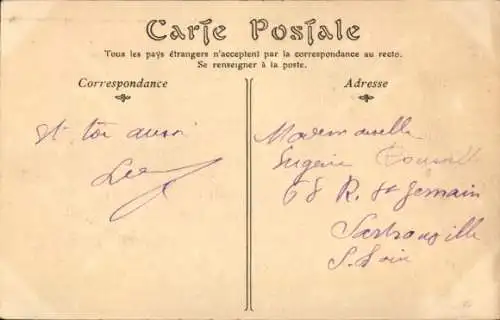 Carte Postale
Tous les pays étrangers n'acceptent par la correspondance au recto.
Se renseigner à la poste.
Correspondance
Adresse
et toi aussi
Mademoiselle
Eugénie
68 R. St Germain
Sartrouville
S. Oise